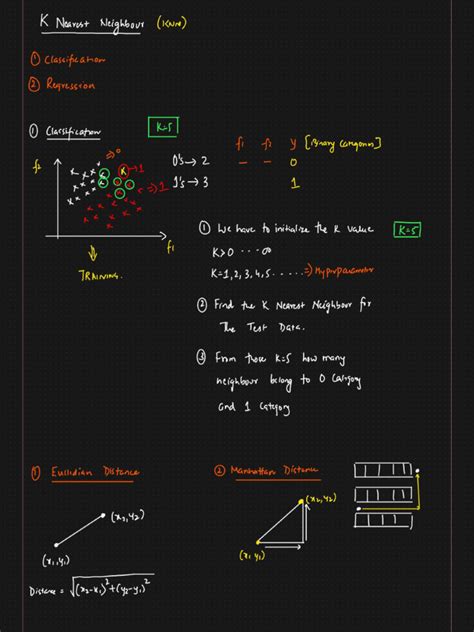 K Nearest Neighbour (KNN)
① Classification
② Regression
① Classification
K=5
f2
f1
⇒ 0
→ 1
⇒ 1
TRAINING
0's → 2
1's → 3
f1 f2 y [Binary Categories]
— — 0
1
① We have to initialize the K value K=5
K>0 ... ∞
K=1,2,3,4,5 ..... ⇒ Hyperparameter
② Find the K Nearest Neighbour for
The Test Data.
③ From those K=5 how many
neighbour belong to 0 category
and 1 category
① Euclidian Distance
(x2,y2)
(x1,y1)
Distance = √(x2-x1)²+(y2-y1)²
② Manhattan Distance
(x2,y2)
(x1,y1)